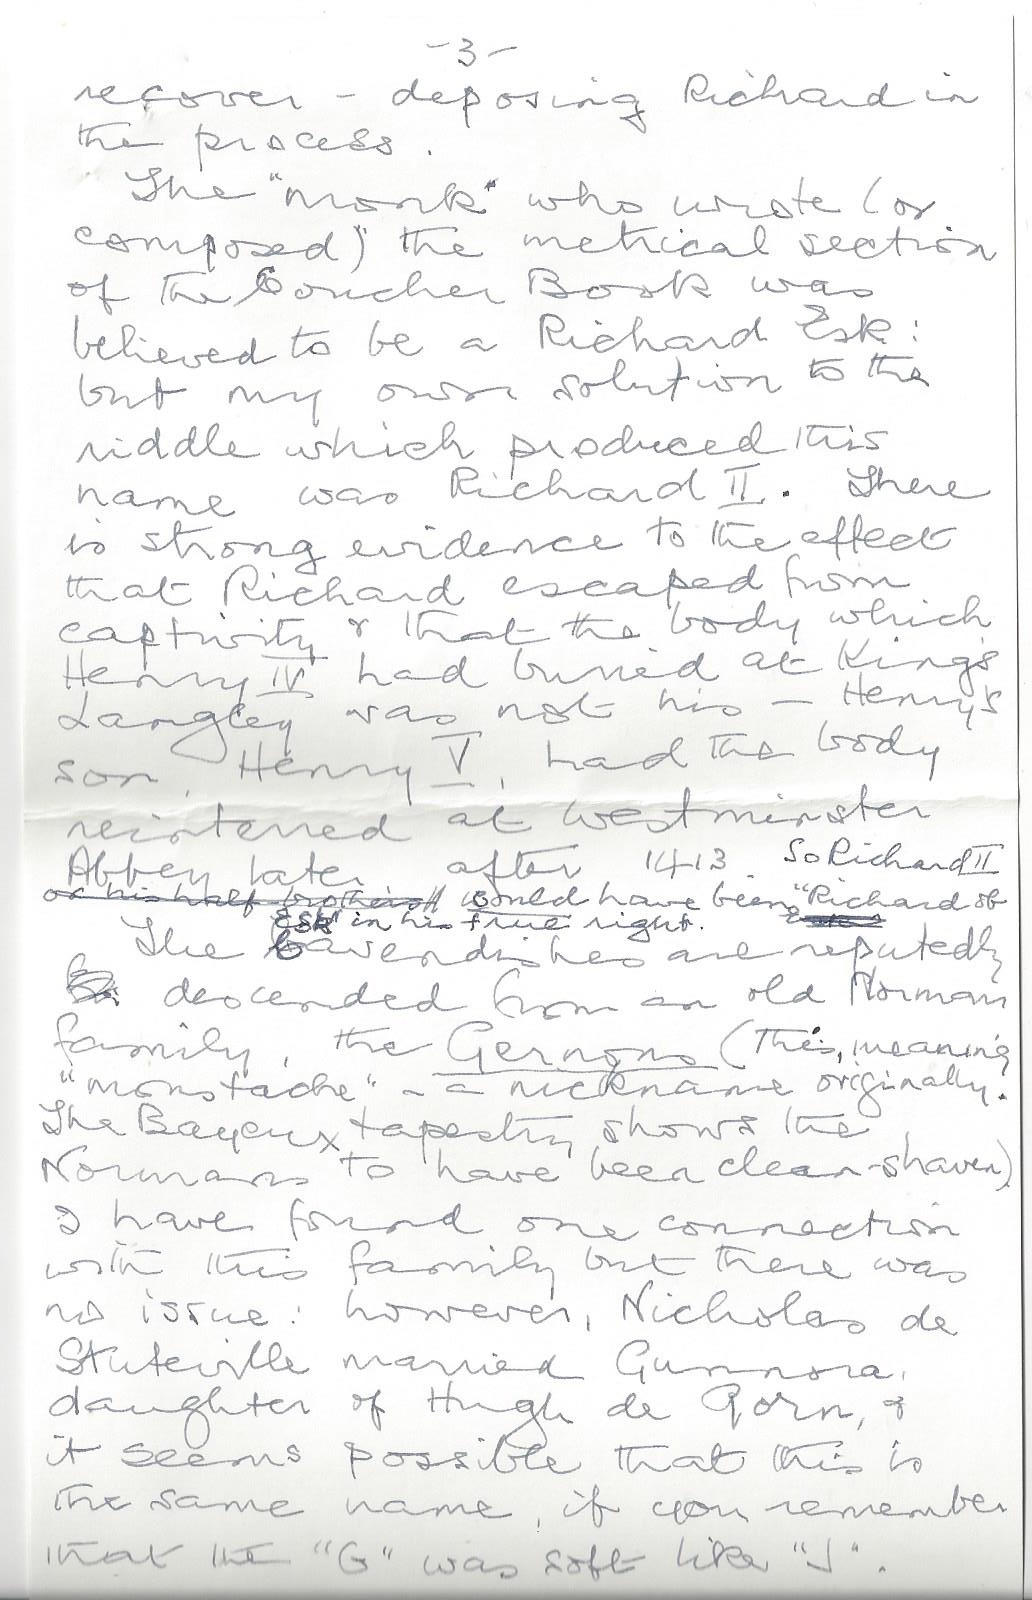 -3-
recover - deposing Richard in
the process.
The "monk" who wrote (or
composed) the metrical section
of the Coucher Book was
believed to be a Richard Esk:
but my own solution to the
riddle which produced this
name was Richard II. There
is strong evidence to the effect
that Richard escaped from
captivity & that the body which
Henry IV had buried at King's
Langley was not his - Henry's
son, Henry V, had the body
reinterred at Westminster
Abbey later after 1413 So Richard II
or his half brother would have been "Richard of
Esk" in his true right.
The Cavendishes are reputedly
descended from an old Norman
family, the Gernons (This, meaning
"moustache" - a nickname originally.
The Bayeux tapestry shows the
Normans to have been clean-shaven)
I have found one connection
with this family but there was
no issue: however, Nicholas de
Stuteville married Gunnora,
daughter of Hugh de Gorn, &
it seems possible that this is
the same name, if you remember
that the "G" was soft like "J".